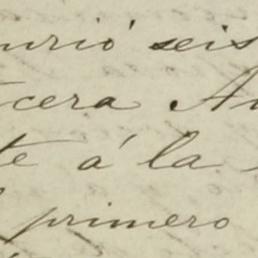 urió seis
cera A
te á la
primero